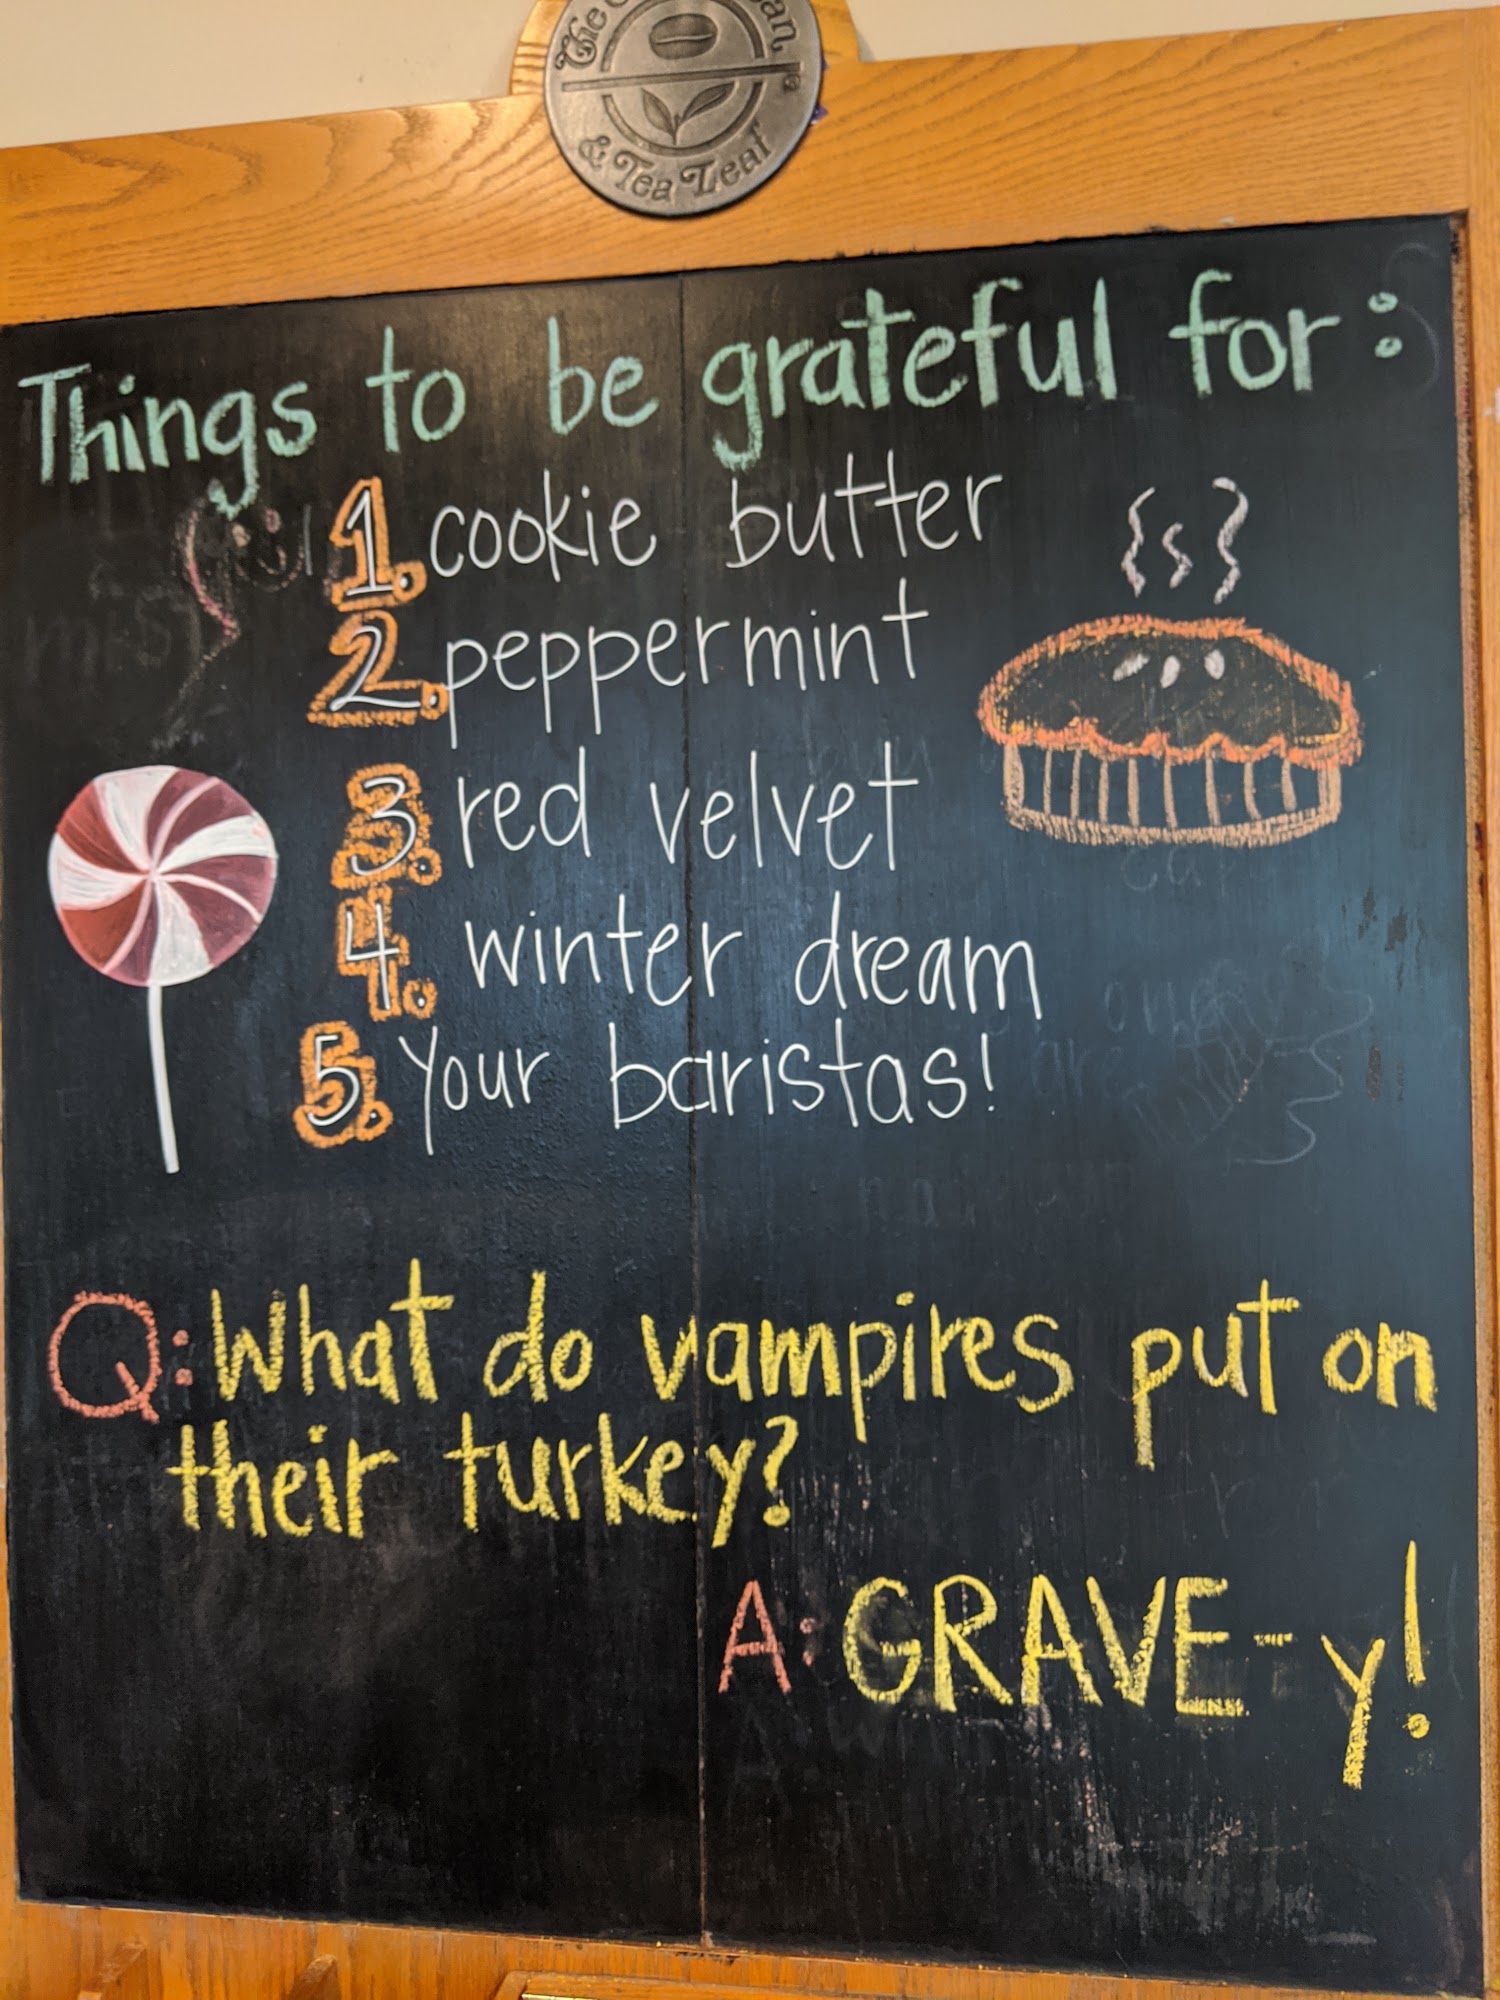 & Tea Leaf
Things to be grateful for:
1. cookie butter
2. peppermint
3. red velvet
4. winter dream
5. Your baristas!
Q: What do vampires put on
their turkey?
A: GRAVE-y!